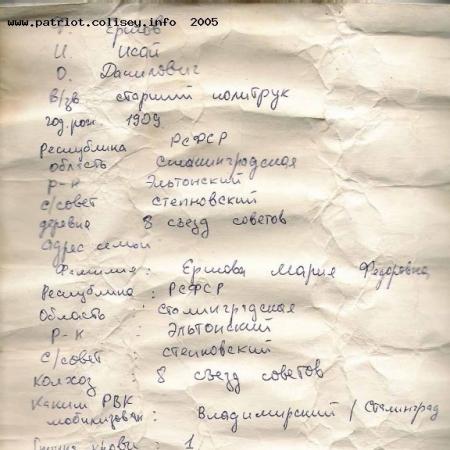 www.patriot.colisey.info 2005
Ф. Ершов
И. Исай
О. Данилович
в/зв старший политрук
год.рож 1909
Республика РСФСР
область Сталинградская
р-н Эльтонский
с/совет степновский
деревня 8 съезд советов
Адрес семьи
Фамилия: Ершова Мария Федоровна
Республика: РСФСР
Область: Сталинградская
Р-н - Эльтонский
с/совет степновский
колхоз 8 съезд советов
Каким РВК
мобилизован: Владимирский / Сталинград
Группа крови: 1